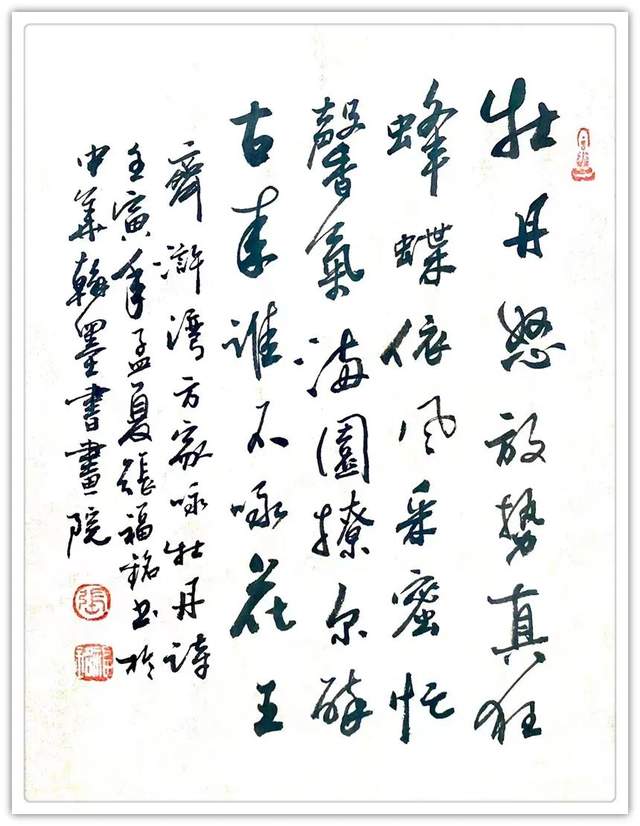 牡丹怒放势真狂
蜂蝶依风采蜜忙
馨氣满園撩尔醉
古来谁不咏花王
齊滸湾方家咏牡丹詩
壬寅年孟夏張福銘书於
中華翰墨書畫院
張